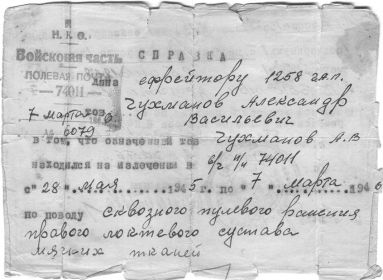 Н.К.О.
Войсковая часть
ПОЛЕВАЯ ПОЧТА
74011
СПРАВКА
дана ефрейтору 1258
Чухманов Александр
7 марта Васильевич
6079
в том, что означенный тов Чухманов А.В
находился на излечении в в/ч п/п 74011
с "28" мая 1945 г. по "7" марта 194
по поводу сквозного пулевого ранения
правого локтевого сустава
мягких тканей